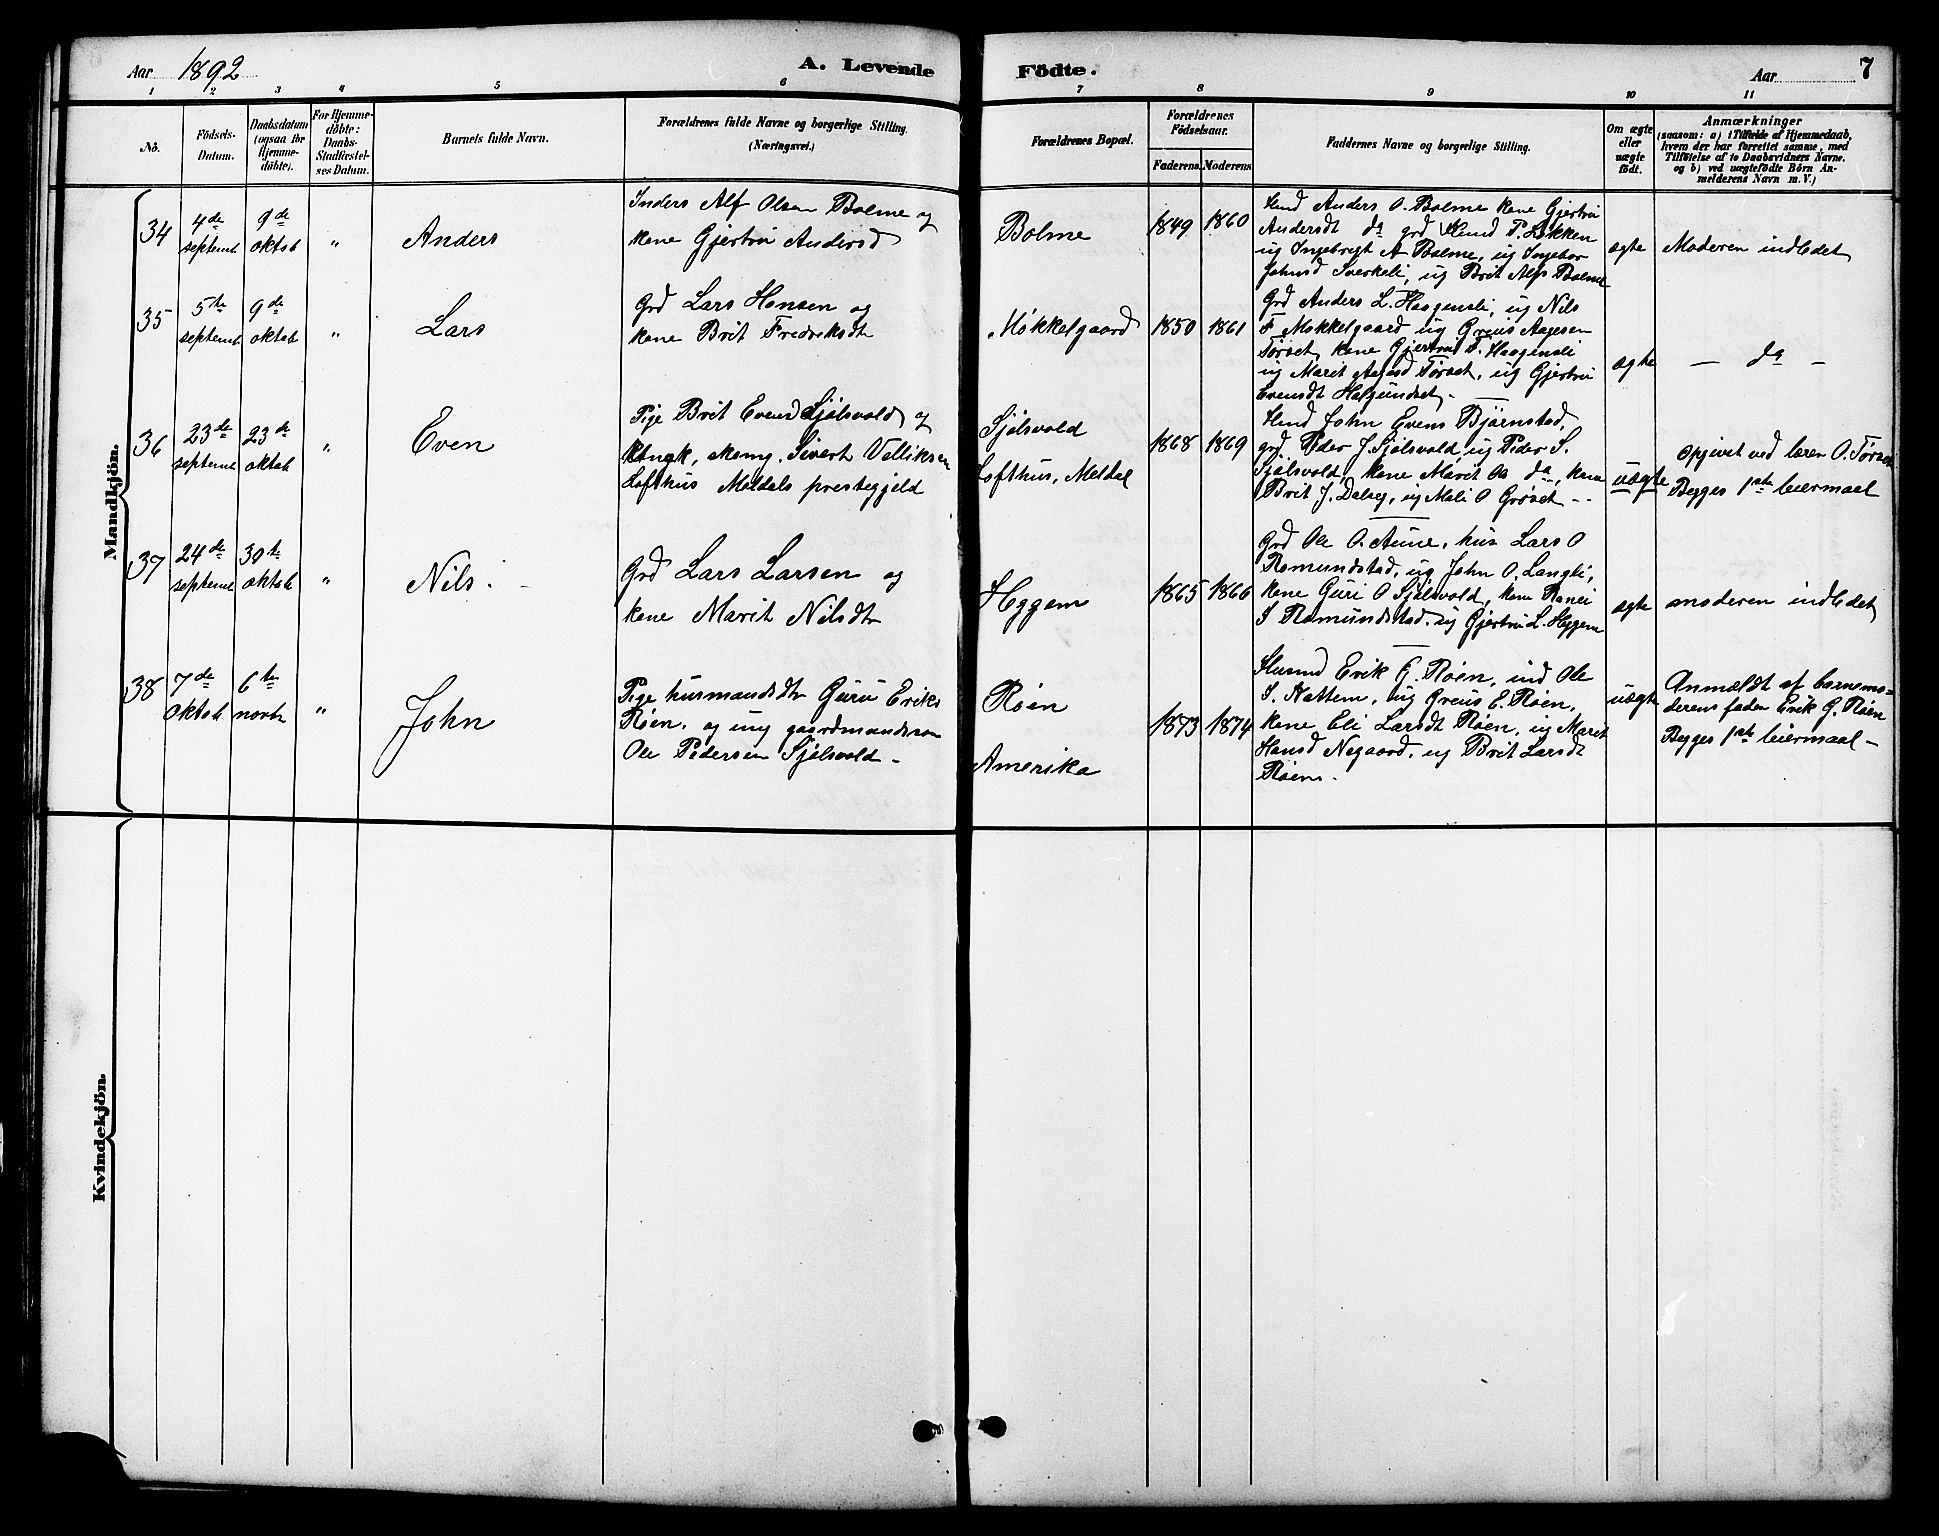 Aar 1892
A. Levende
Födte.
Aar
7
1 2 3 4 5 6 7 8 9 10 11
No.
Födsels-
Datum.
Daabsdatum
(ogsaa for
Hjemme-
döbte).
For Hjemme-
döbte:
Daabs-
Stadfæstel-
ses Datum.
Barnets fulde Navn.
Forældrenes fulde Navne og borgerlige Stilling.
(Næringsvei.)
Forældrenes Bopæl.
Forældrenes
Födselsaar.
Faderens. Moderens
Faddernes Navne og borgerlige Stilling.
Om ægte
eller
uægte
födt.
Anmærkninger
(saasom: a) i Tilfælde af Hjemmedaab,
hvem der har forrettet samme, med
Tilföielse af to Daabsvidners Navne.
og b) ved uægtefödte Börn An-
melderens Navn m. V.)
Mandkjön.
34
4de
septemb
9de
oktob
"
Anders
Inders Alf Olsen Bolme og
kone Gjertru Andersd
Bolme
1849 1860
Anders O. Bolme kone Gjertru
Andersdt do grd P. Løkken
ug Ingebrigt A Bolme, ug Ingebor
Johnsd ug Brit Alfs Bolme
ægte
Moderen indledet
35
5te
septemb
9de
oktob
"
Lars
Grd Lars Hansen og
kone Brit Fredriksdt
Mokkelgaard
1850 1861
Grd Anders L. Haagensli, ug Nils
F. Mokkelgaard ug Greus Aagesen
Tørset, kone Gjertru F. Haagensli
ug Marit Aagesd Tørset, ug Gjertru
Evensdt
ægte
– do –
36
23de
septemb
23de
oktob
"
Even
Pige Brit Evensd Sjølsvold og
Sivert
Lofthus Meldals prestegjeld
Sjølsvold
Lofthus, Meldal
1868 1869
John Evens Bjørnstad,
grd. Peder J. Sjølsvold, ug Peder S.
Sjølsvold, kone Marit Os do, kone
Brit J. Dalseg, ug Mali O Grøset - -
uægte
Opgivet ved lærer O. Tørset
Begges 1ste leiermaal
37
24de
septemb
30te
oktob
"
Nils. -
Grd Lars Larsen og
kone Marit Nilsdtr
Heggem
1865 1866
Grd Ole O. Aune, hus Lars O
Romundstad, ug John O. Langli,
kone Guri O Sjølsvold, kone Ranei
S Romundstad, ug Gjertru L. Heggem
ægte
moderen indledet
38
7de
oktob
6te
novbr
"
John
Pige husmandsdtr Guru Eriks
Røen, og ung gaardmandssøn
Ole Pedersen Sjølsvold –
Røen
Amerika
1873 1874
Husmd Erik G. Røen, ind Ole
S. Nattem, ug Greus E. Røen,
kone Eli Larsdt Røen, ug Marit
Hansd Negaard, ug Brit Larsdt
Røen -
uægte
Anmældt af barnemo-
derens fader Erik G. Røen
Begges 1ste leiermaal –
Kvindekjön.